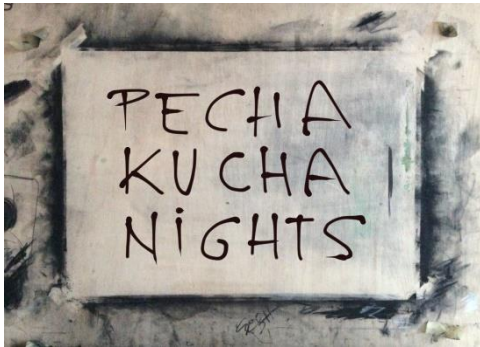 PECHA
KUCHA
NiGHTS